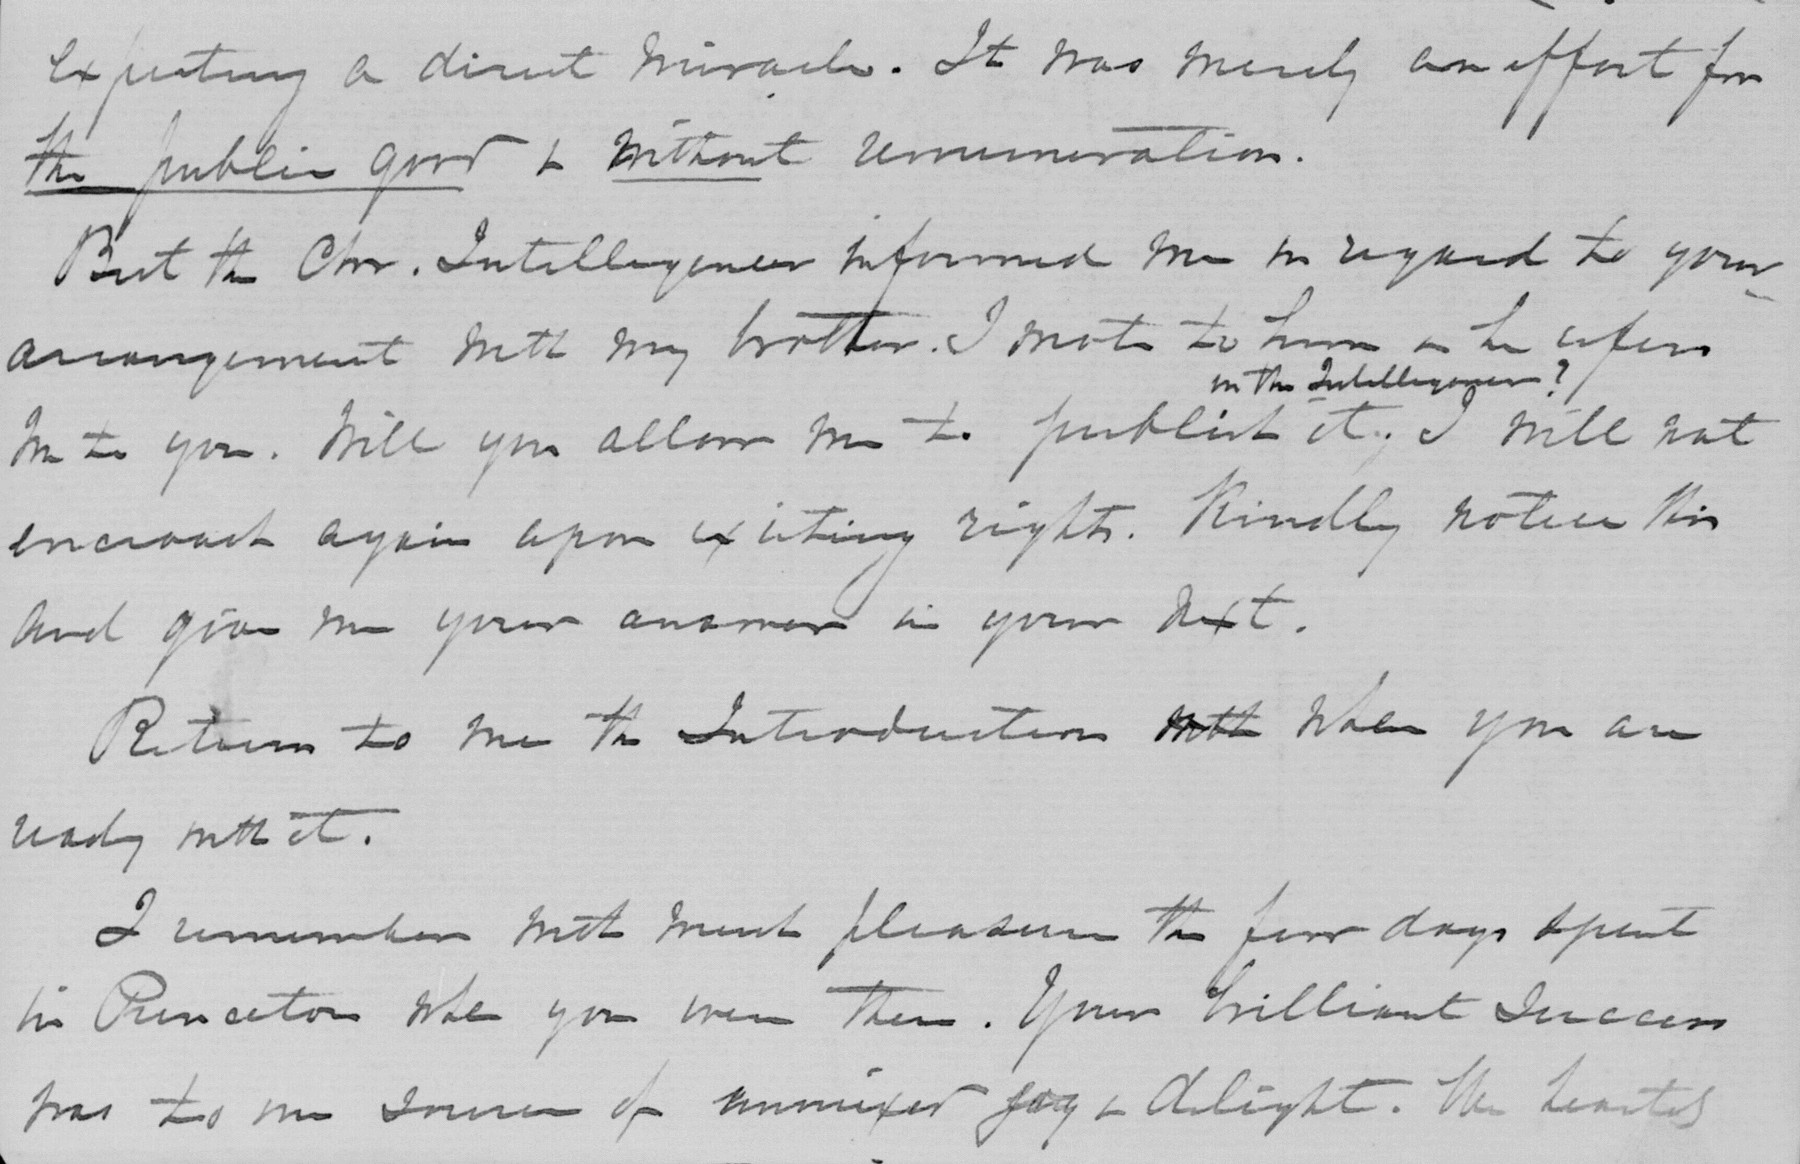 expecting a direct miracle. It was merely an effort for
the public good & without remuneration.
But the Chr. Intelligencer informed me in regard to your
arrangement with my brother. I wrote to him & he refers
in the Intelligencer?
me to you. Will you allow me to publish it; I will not
encroach again upon existing rights. Kindly notice this
and give me your answer in your next.
Return to me the Introduction with when you are
ready with it.
I remember with much pleasure the few days spent
in Princeton when you were there. Your brilliant success
was to me source of unmixed joy & delight. We